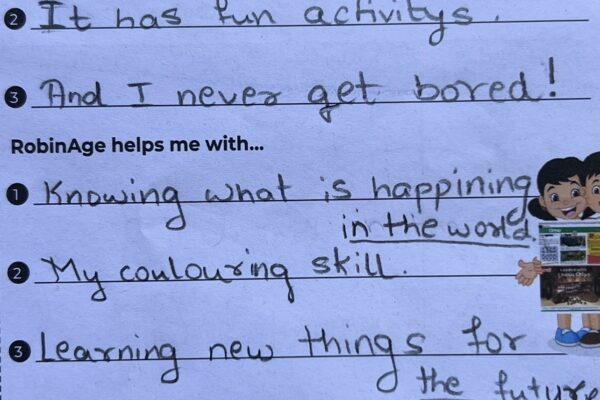 2 It has fun activitys.
3 And I never get bored!
RobinAge helps me with...
1 Knowing what is happining
in the world.
2 My coulouring skill.
3 Learning new things for
the future